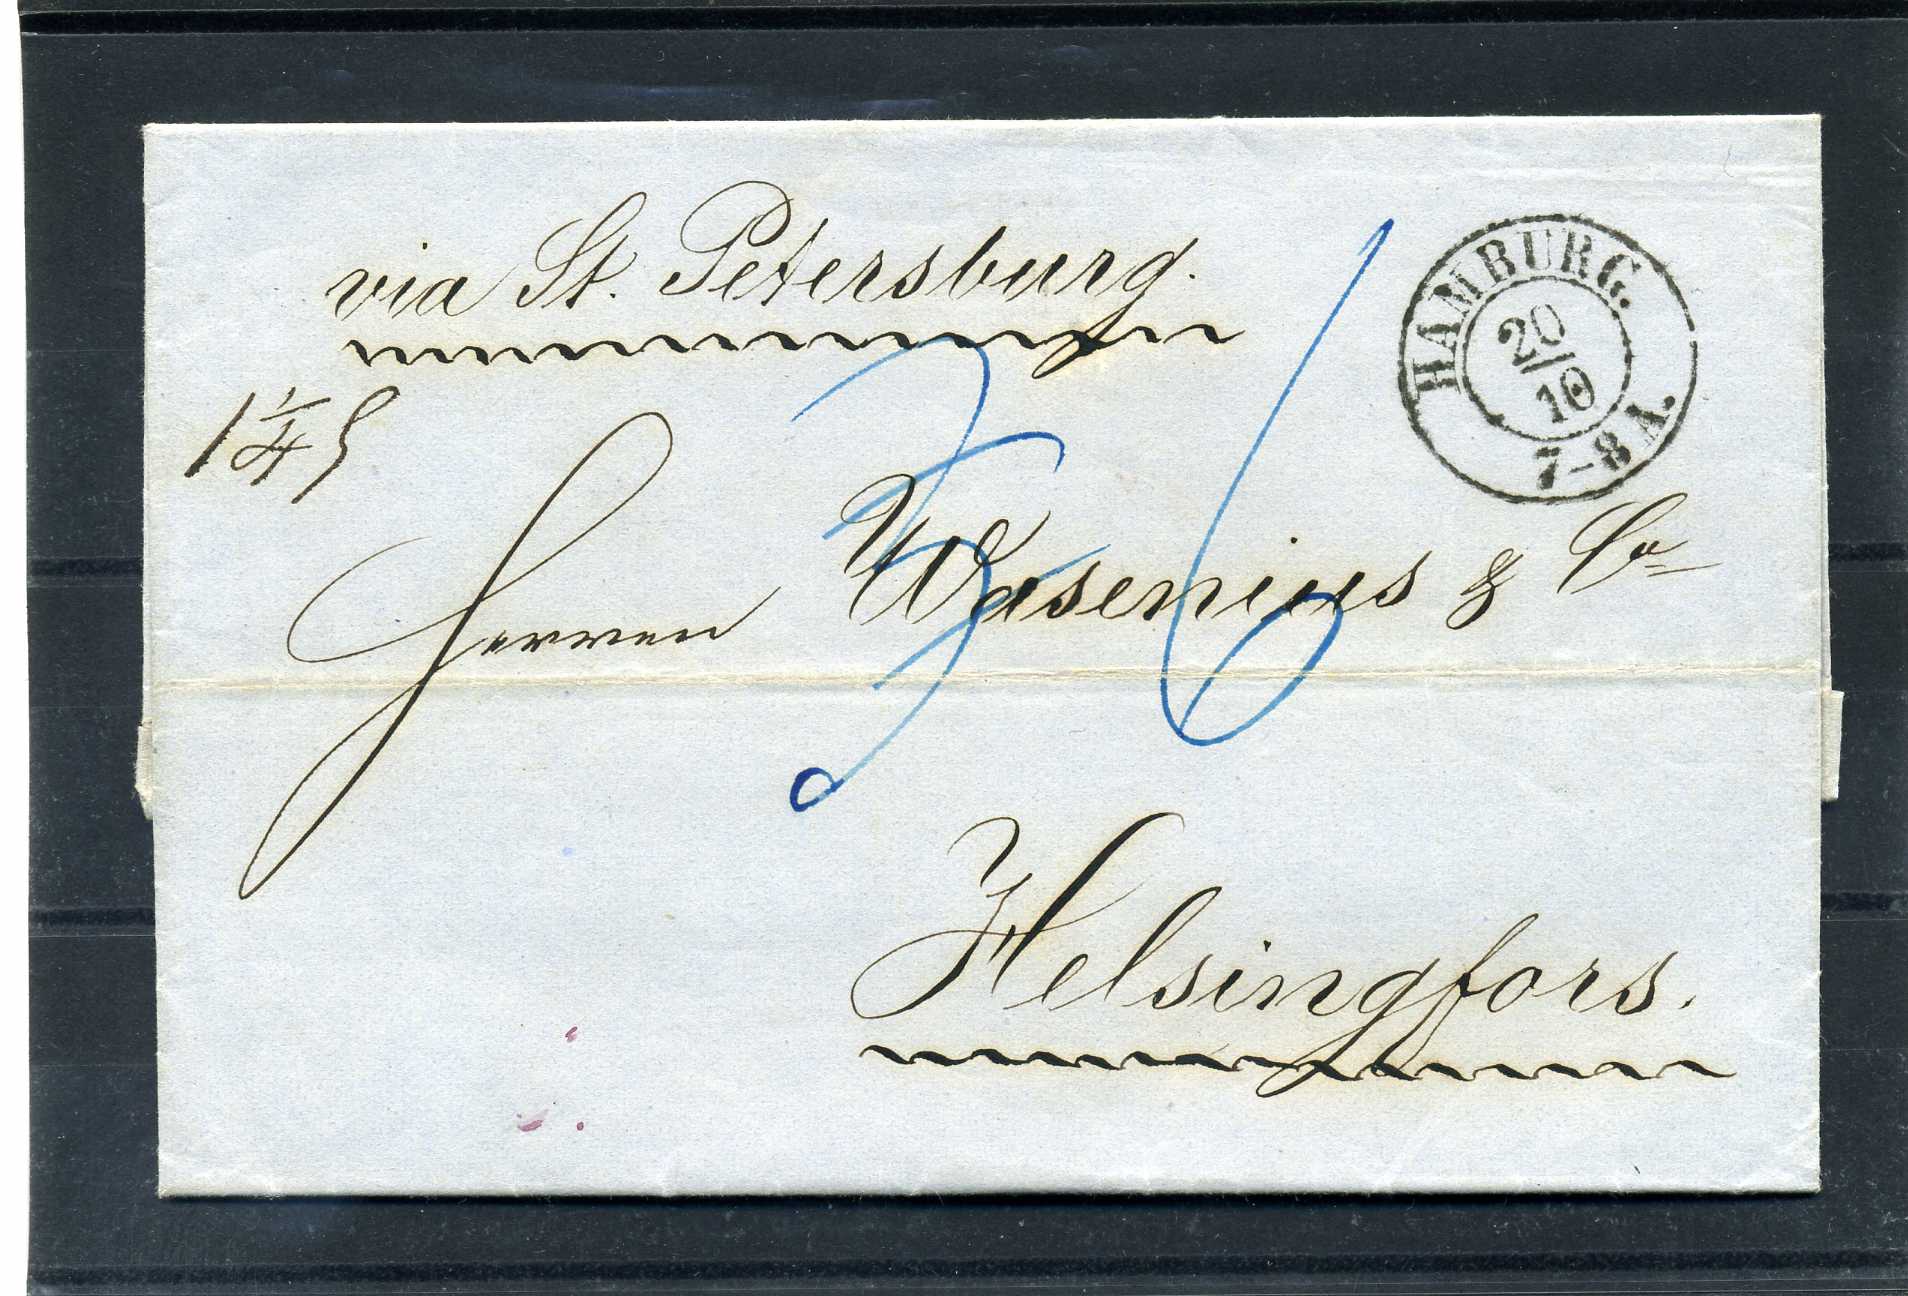 via St. Petersburg.
HAMBURG.
20/10
7-8 A.
1 1/4
Herren Wasenius & Co
6
Helsingfors.